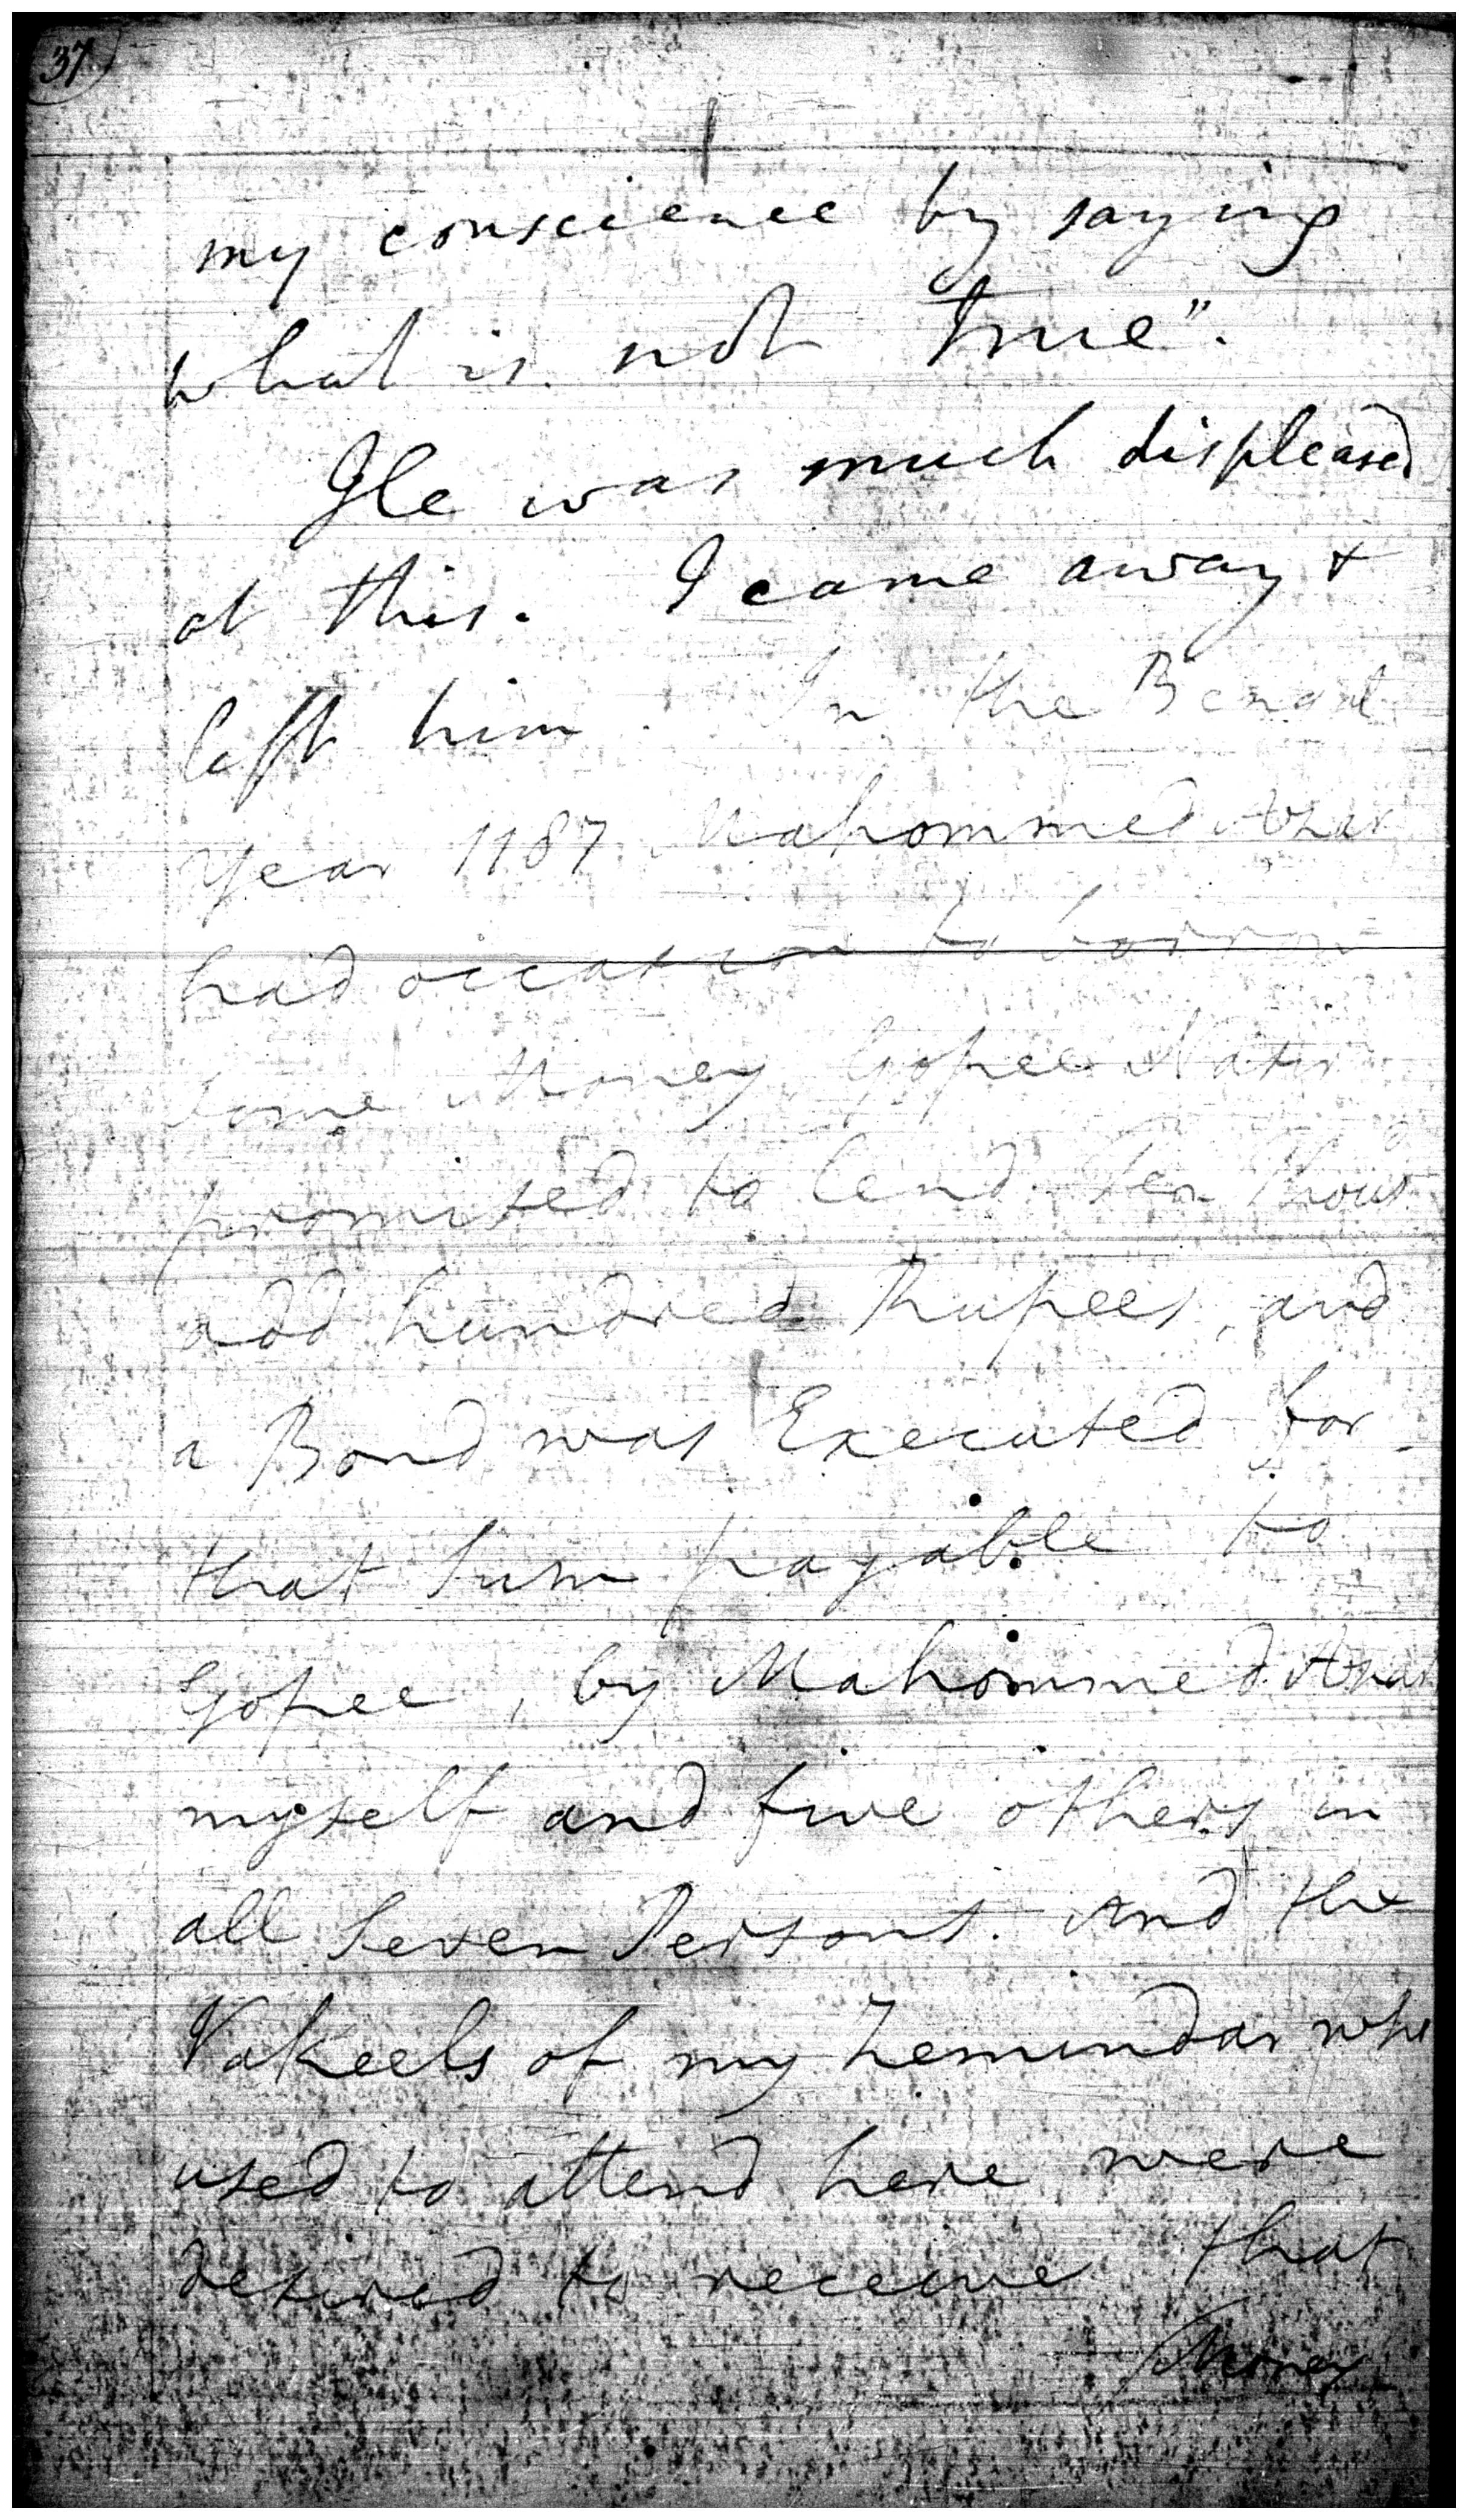 37
my conscience by saying
what is not true".
He was much displeased
at this. I came away &
left him. In the Bengal
year 1187 Mahommed
had occasion to borrow
some Money Gopee Nath
promised to lend Ten thous
add hundred Rupees, and
a Bond was Executed for
that Sum payable to
Gopee, by Mahommed
myself and five others in
all Seven Persons. And the
Vakeels of my Zemindar who
used to attend here were
desired to receive that
Money